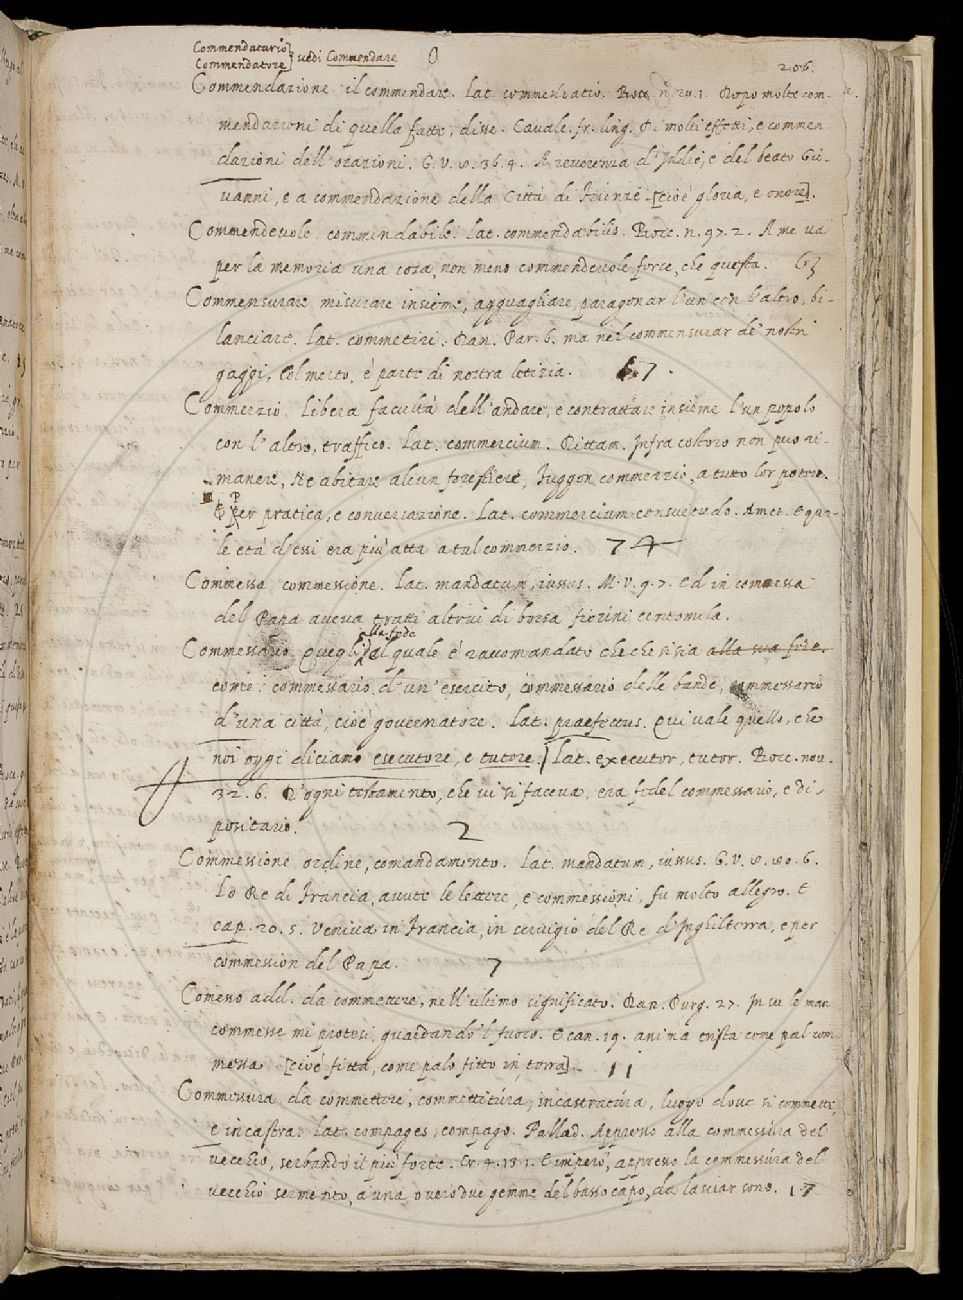 Commendatario
Commendatore } vedi Commendare 0
206.
Commendazione. il commendare. Lat. commendatio. Bocc. n. 20. 1. Dopo molte com-
mendazioni di quella fatte, disse. Cavalc. fr. ling. Di molti effetti, e commen
dazioni dell'orazioni. G. V. 36. 4. A reverenza d'Iddio, e del beato Gio-
vanni, e a commendazione della Città di Firenze. [cioè gloria, e onore].
Commendevole. commendabile. Lat. commendabilis. Bocc. n. 97. 2. A me va
per la memoria una cosa, non meno commendevole forse, che questa. 63
Commensurare misurare insieme, agguagliare, paragonar l'un con l'altro, bi-
lanciare. Lat. commetiri. Dan. Par. 6. ma nel commensurar de' nostri
gaggi, Col merto, è parte di nostra letizia. 67.
Commerzio. Libera facultà dell'andare, e contrattare insieme l'un popolo
con l'altro, traffico. Lat. commercium. Dittam. Infra costoro non può ri-
manere, Ne abitare alcun forestiere, Fuggon commerzio, a tutto lor potere.
E per pratica, e conversazione. Lat. commercium consuetudo. Amet. E qua-
le età d'essi era più atta a tal commerzio. 74
Commessa. commessione. Lat. mandatum, iussus. M. V. 9. 7. Ed in commessa
del Papa aveva tratti altrui di borsa fiorini centomila.
alla fede
Commessario. Quegli, al quale è raccomandato che che si sia alla sua fede.
come: commessario d'un'esercito, commessario delle bande, commessario
d'una città, cioè governatore. Lat. praefectus. Qui vale quello, che
noi oggi diciamo esecutore, e tutore.] Lat. executor, tutor. Bocc. nov.
32. 6. D'ogni testamento, che vi si faceva, era fedel commessario, e di-
positario. 2
Commessione ordine, comandamento. Lat. mandatum, iussus. G. V. 80. 6.
Lo Re di Francia, avute le lettere, e commessioni, fu molto allegro. E
cap. 20. 5. Veniva in Francia, in servigio del Re d'Inghilterra, e per
commession del Papa. 7
Comesso add. da commettere, nell'ultimo significato. Dan. Purg. 27. In su le man
commesse mi protesi, guardando'l fuoco. E can. 19. anima trista come pal com
messa. [cioè fitta, come palo fitto in terra]. 11
Commessura, da commettere, commettitura, incastratura, luogo dove si commette
e incastra. Lat. compages, compago. Pallad. Appresso alla commessura del
vecchio, serbando il più forte. Cr. 4. 13. 1. E imperò, appresso la commessura del
vecchio sermento, a una, o vero due gemme del basso capo, da lasciar sono. 17